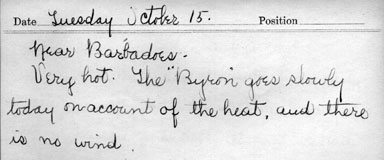 Date Tuesday October 15. Position
Near Barbadoes.
Very hot. The "Byron" goes slowly
today on account of the heat, and there
is no wind.